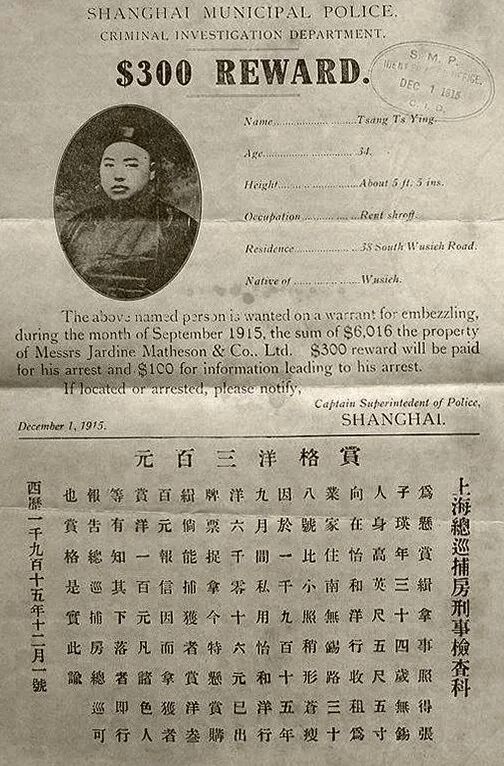 SHANGHAI MUNICIPAL POLICE.
CRIMINAL INVESTIGATION DEPARTMENT.
$300 REWARD.
S. M. P.
OFFICE.
DEC 1 1915
C. I. D.
Name..................Tsang Ts Ying.
Age.....................34.
Height..................About 5 ft. 5 ins.
Occupation..............Rent shroff.
Residence...............38 South Wusieh Road.
Native of ...............Wusieh.
The above named person is wanted on a warrant for embezzling,
during the month of September 1915, the sum of $6,016 the property
of Messrs Jardine Matheson & Co., Ltd. $300 reward will be paid
for his arrest and $100 for information leading to his arrest.
If located or arrested, please notify,
Captain Superintedent of Police,
SHANGHAI.
December 1, 1915.
賞格洋三百元
上海總巡捕房刑事檢查科
為懸賞緝拿事照得張
子瑛年三十四歲無錫
人身高英尺五尺五寸
向在怡和洋行收租為
業家住南無錫路三十
八號比小照稍形蒼瘦
因於一千九百十五年
九月間私用怡和洋行
洋六千零十六元已出
牌票捉拿今特懸賞購
緝倘能捕獲者賞洋叁
百元報信因而拿獲者
賞洋一百元凡諸色人
等有知其下落者即行
報告總巡捕房總巡可
也賞格是實此諭
西曆一千九百十五年十二月一號